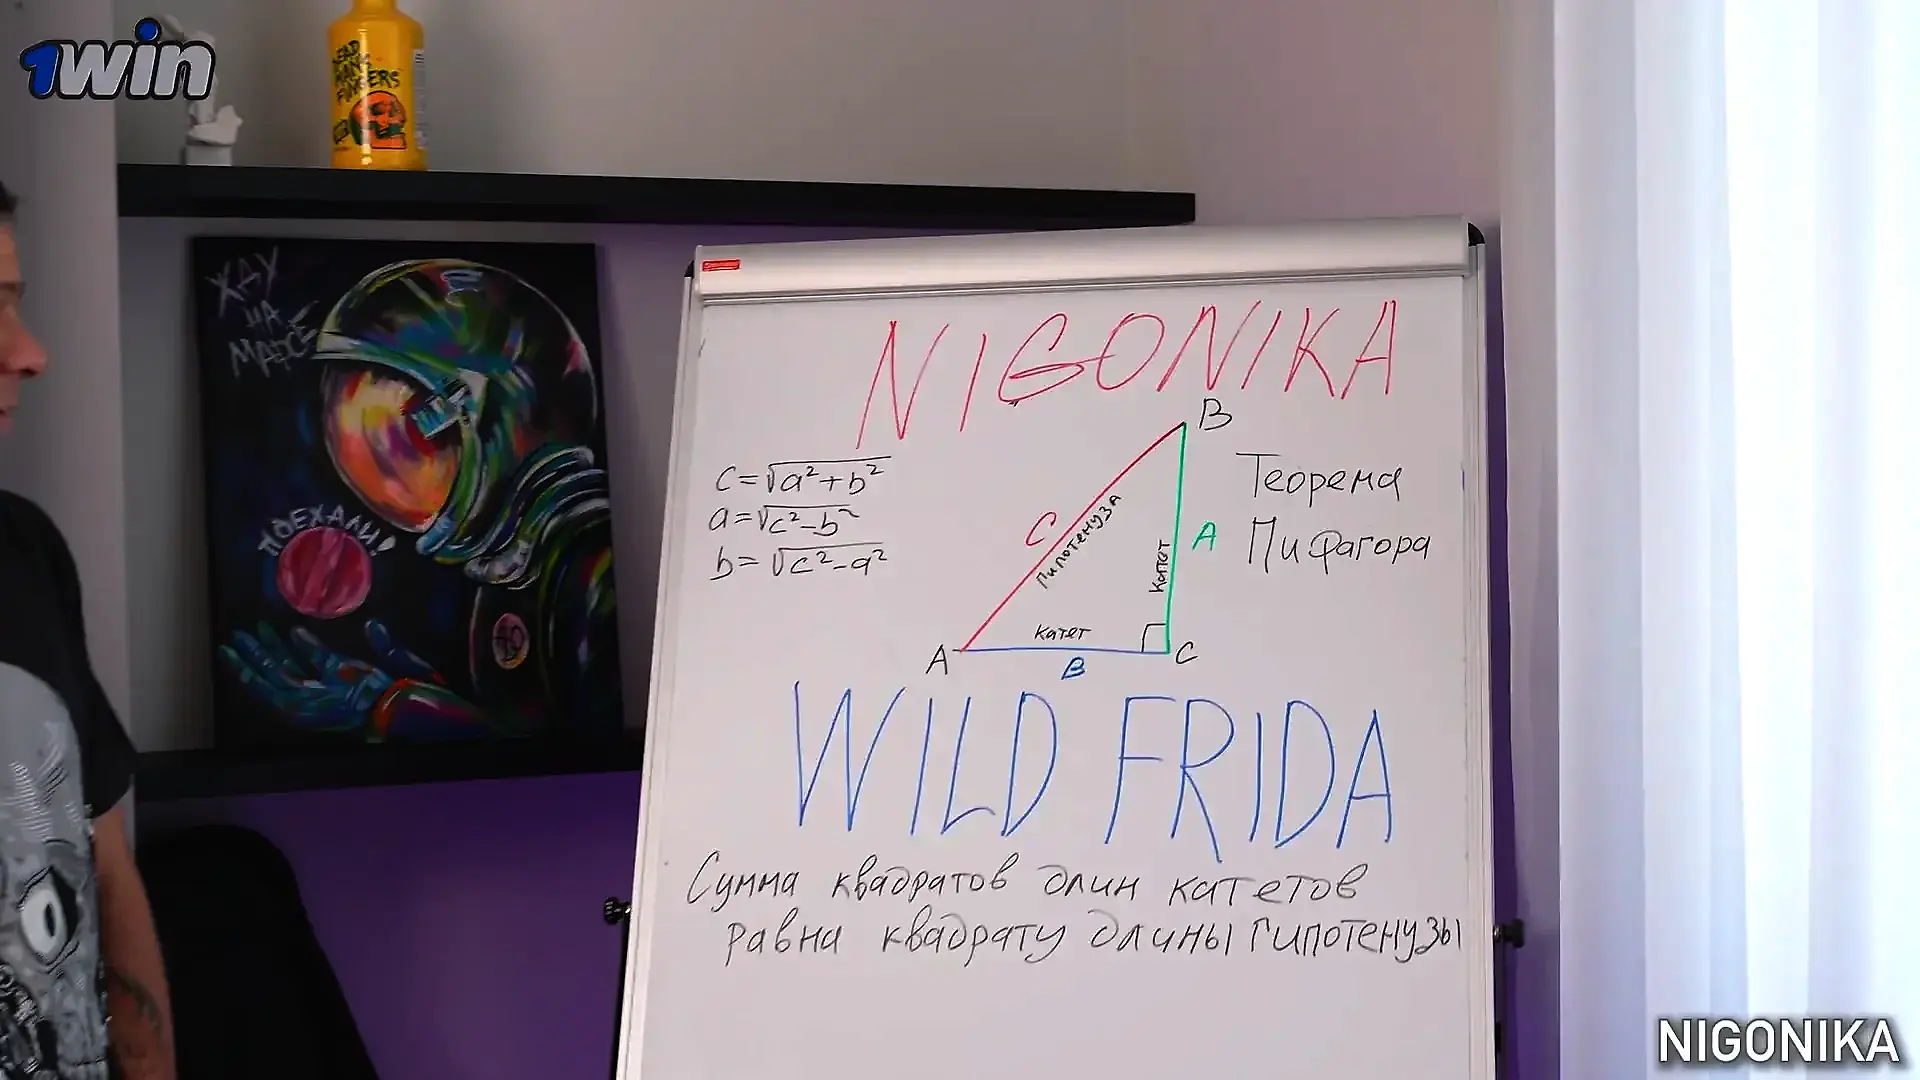 1win
DEAD
MAN'S
FINGERS
ЖДУ
НА
МАРСЕ
ПОЕХАЛИ!
NIGONIKA
B
c=√a²+b²
a=√c²-b²
b=√c²-a²
C
Гипотенуза
Катет
A
Теорема
Пифагора
Катет
A
B
C
WILD FRIDA
Сумма квадратов длин катетов
равна квадрату длины гипотенузы
NIGONIKA